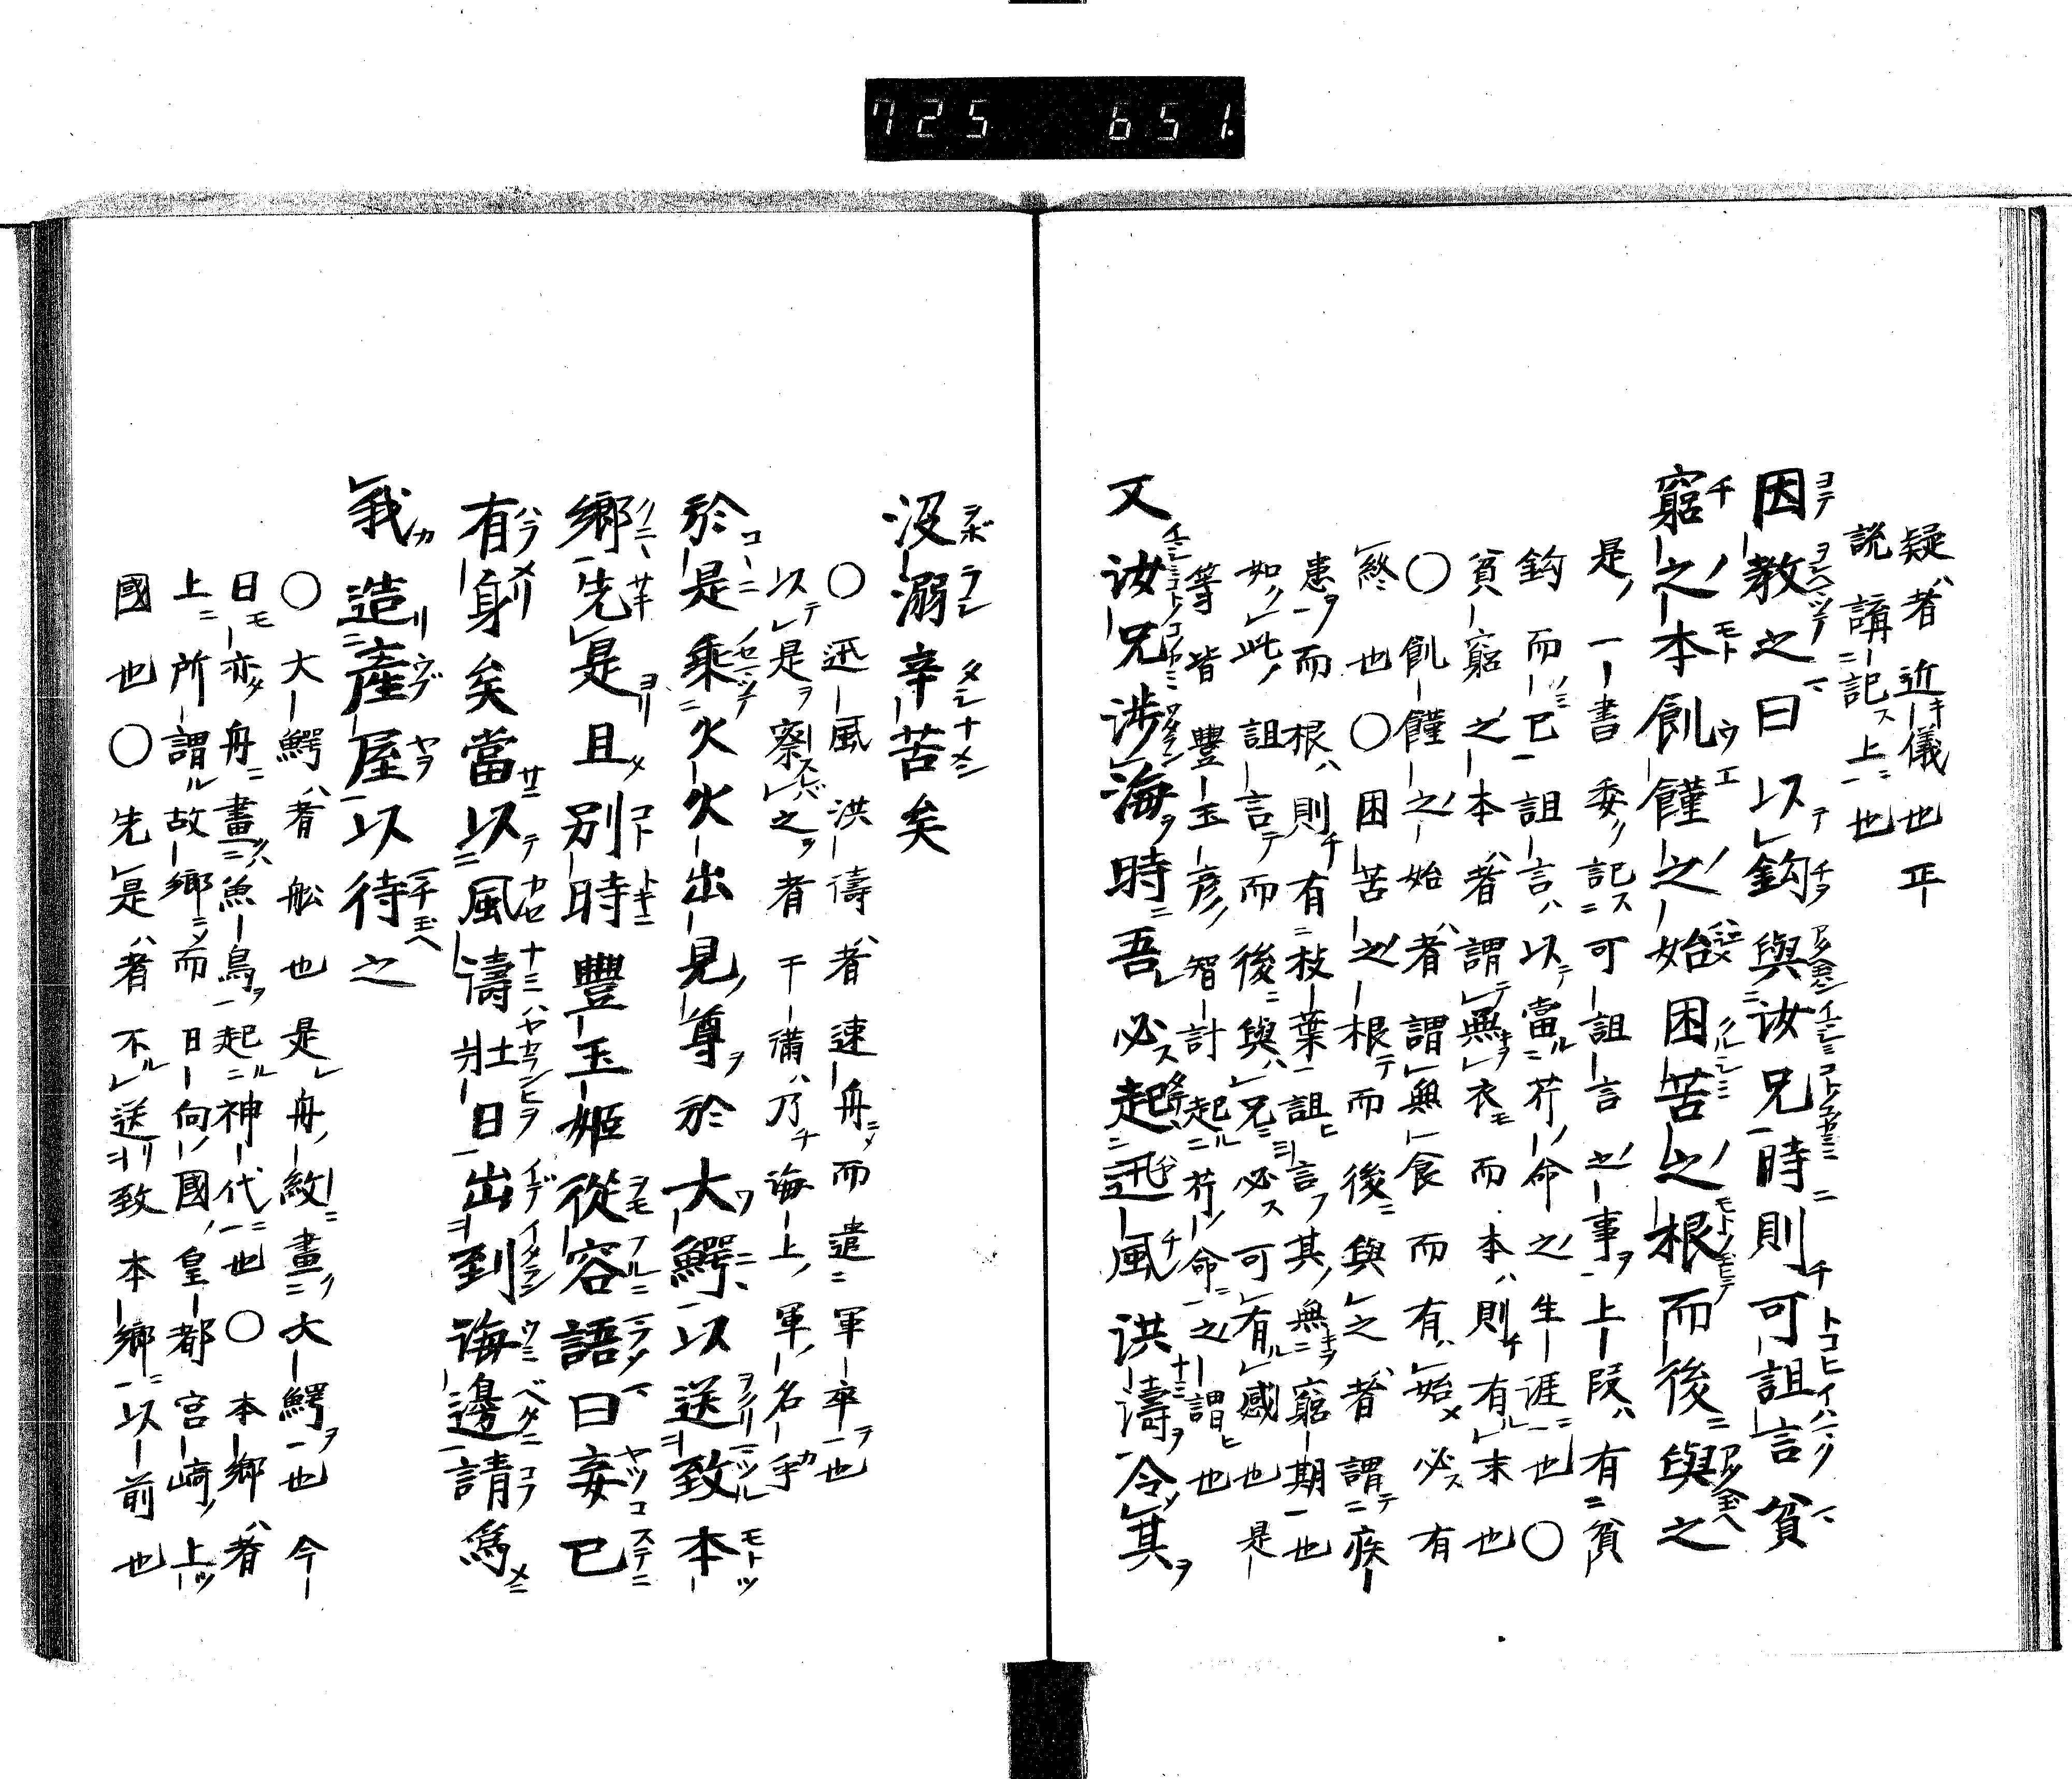 725 651.
疑者近儀也正
説講記上也
因教之曰以鈎與汝兄時則可詛言貧
窮之本飢饉之始困苦之根而後與之
是一書委記可詛言之事上段有貧
鈎而已詛言以當芥命之生涯也〇
貧窮之本者謂無衣而本則有末也
〇飢饉之始者謂無食而有始必有
終也〇困苦之根而後與之者謂疾
患而根則有枝葉詛言其無窮期也
如此詛言而後與兄必可有感也是
等皆豐玉彦智計起芥命之謂也
又汝兄涉海時吾必起迅風洪濤令其
没溺辛苦矣
〇迅風洪濤者速舟而遣軍卒也
以是察之者干満乃海上軍名乎
於是乘火火出見尊於大鰐以送致本
鄉先是且別時豐玉姬從容語曰妾已
有身矣當以風濤壯日出到海邊請爲
我造產屋以待之
〇大鰐者舩也是舟紋畫大鰐也今
日亦舟畫魚鳥起神代也〇本郷者
上所謂故郷而日向國皇都宮﨑上
國也〇先是者不送致本郷以前也